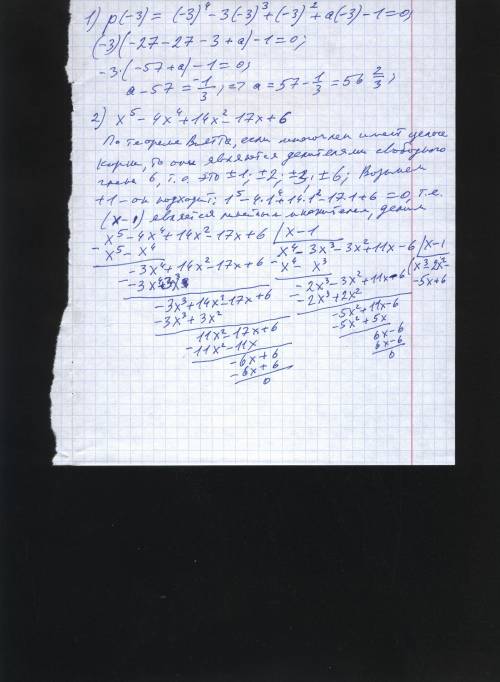 1) p(-3) = (-3)⁴ - 3(-3)³ + (-3)² + a(-3) - 1 = 0;
(-3)(-27 - 27 - 3 + a) - 1 = 0;
-3·(-57 + a) - 1 = 0;
a - 57 = -1/3; => a = 57 - 1/3 = 56 2/3;
2) x⁵ - 4x⁴ + 14x² - 17x + 6
По теореме Виетта, если многочлен имеет целые
корни, то они являются делителями свободного
члена 6, т.е. это ±1, ±2, ±3, ±6; Возьмем
+1 - он подходит; 1⁵ - 4·1⁴ + 14·1² - 17·1 + 6 = 0, т.е.
(x-1) является множителем, делим
x⁵ - 4x⁴ + 14x² - 17x + 6 | x - 1
- x⁵ - x⁴
x⁴ - 3x³ - 3x² + 11x - 6 | x - 1
- x⁴ - x³
x³ - 2x² -
- 5x + 6
-3x⁴ + 14x² - 17x + 6
- -3x⁴ + 3x³
-3x³ + 14x² - 17x + 6
-3x³ + 3x²
11x² - 17x + 6
- 11x² - 11x
-6x + 6
-6x + 6
0
-2x³ - 3x² + 11x - 6
-2x³ + 2x²
-5x² + 11x - 6
-5x² + 5x
6x - 6
6x - 6
0